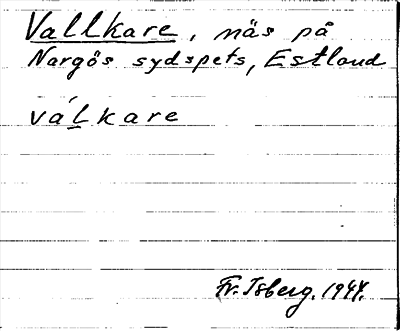 Vallkare, näs på
Nargös sydspets, Estland
válkare
Fr. Isberg. 1944.